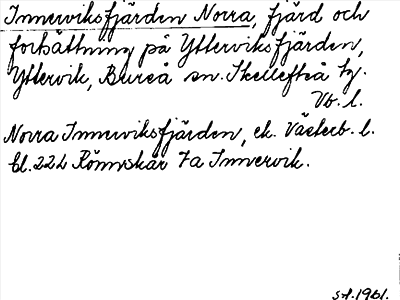 Innerviksfjärden Norra, fjärd och
fortsättning på Ytterviksfjärden,
Yttervik, Bureå sn. Skellefteå tg.
Vb. l.
Norra Innerviksfjärden, ek. Västerb. l.
bl. 22L Rönnskär 7a Innervik.
SA.1961.